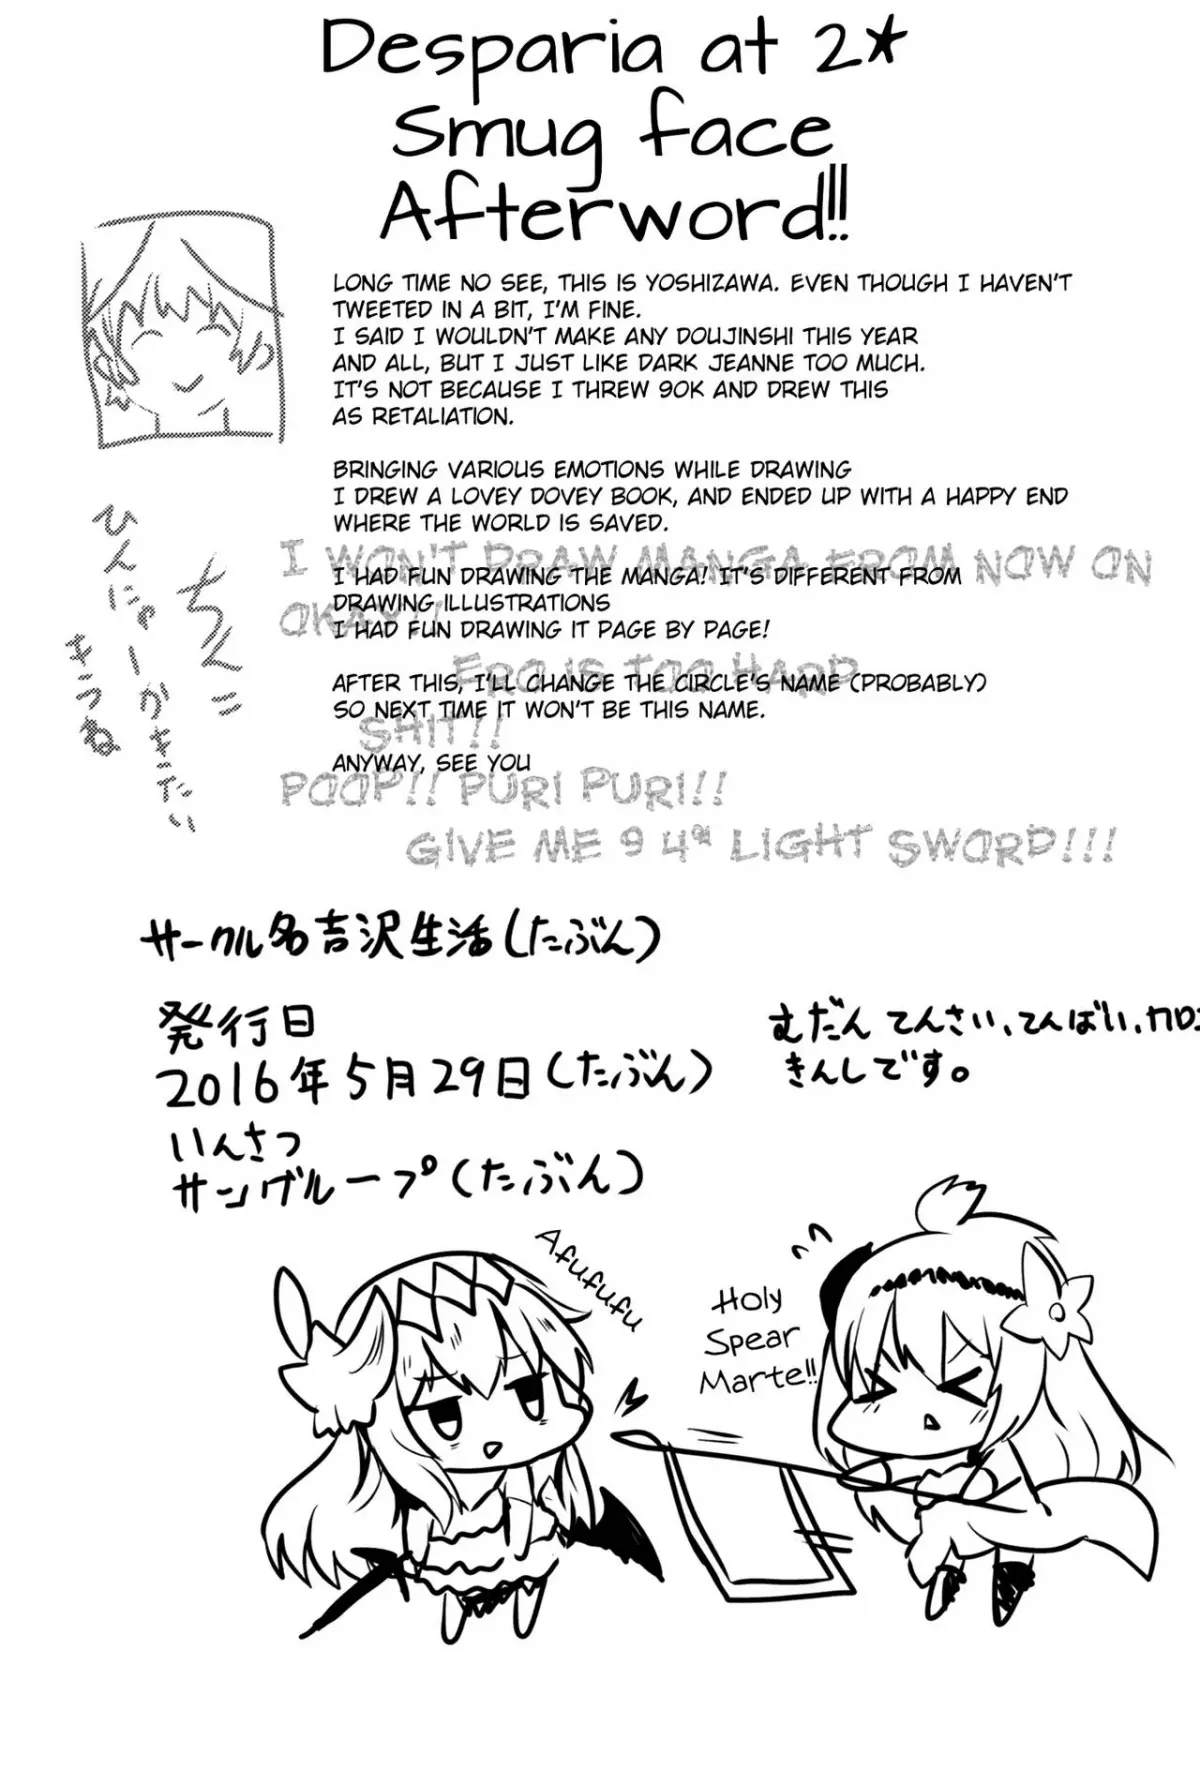 Desparia at 2★
Smug face
Afterword!!
LONG TIME NO SEE, THIS IS YOSHIZAWA. EVEN THOUGH I HAVEN'T
TWEETED IN A BIT, I'M FINE.
I SAID I WOULDN'T MAKE ANY DOUJINSHI THIS YEAR
AND ALL, BUT I JUST LIKE DARK JEANNE TOO MUCH.
IT'S NOT BECAUSE I THREW 90K AND DREW THIS
AS RETALIATION.
BRINGING VARIOUS EMOTIONS WHILE DRAWING
I DREW A LOVEY DOVEY BOOK, AND ENDED UP WITH A HAPPY END
WHERE THE WORLD IS SAVED.
I HAD FUN DRAWING THE MANGA! IT'S DIFFERENT FROM
DRAWING ILLUSTRATIONS
I HAD FUN DRAWING IT PAGE BY PAGE!
AFTER THIS, I'LL CHANGE THE CIRCLE'S NAME (PROBABLY)
SO NEXT TIME IT WON'T BE THIS NAME.
ANYWAY, SEE YOU
I WON'T DRAW MANGA FROM NOW ON
OKAY!!
ERO IS TOO HARD
SHIT!!
POOP!! PURI PURI!!
GIVE ME 9 4* LIGHT SWORD!!!
ちんこ
ひんにゅーかきたい
きつね
サークル名吉沢生活(たぶん)
発行日
2016年5月29日(たぶん)
いんさつ
サングループ(たぶん)
むだん てんさい、てんばい、
きんしです。
Afufufu
Holy
Spear
Marte!!